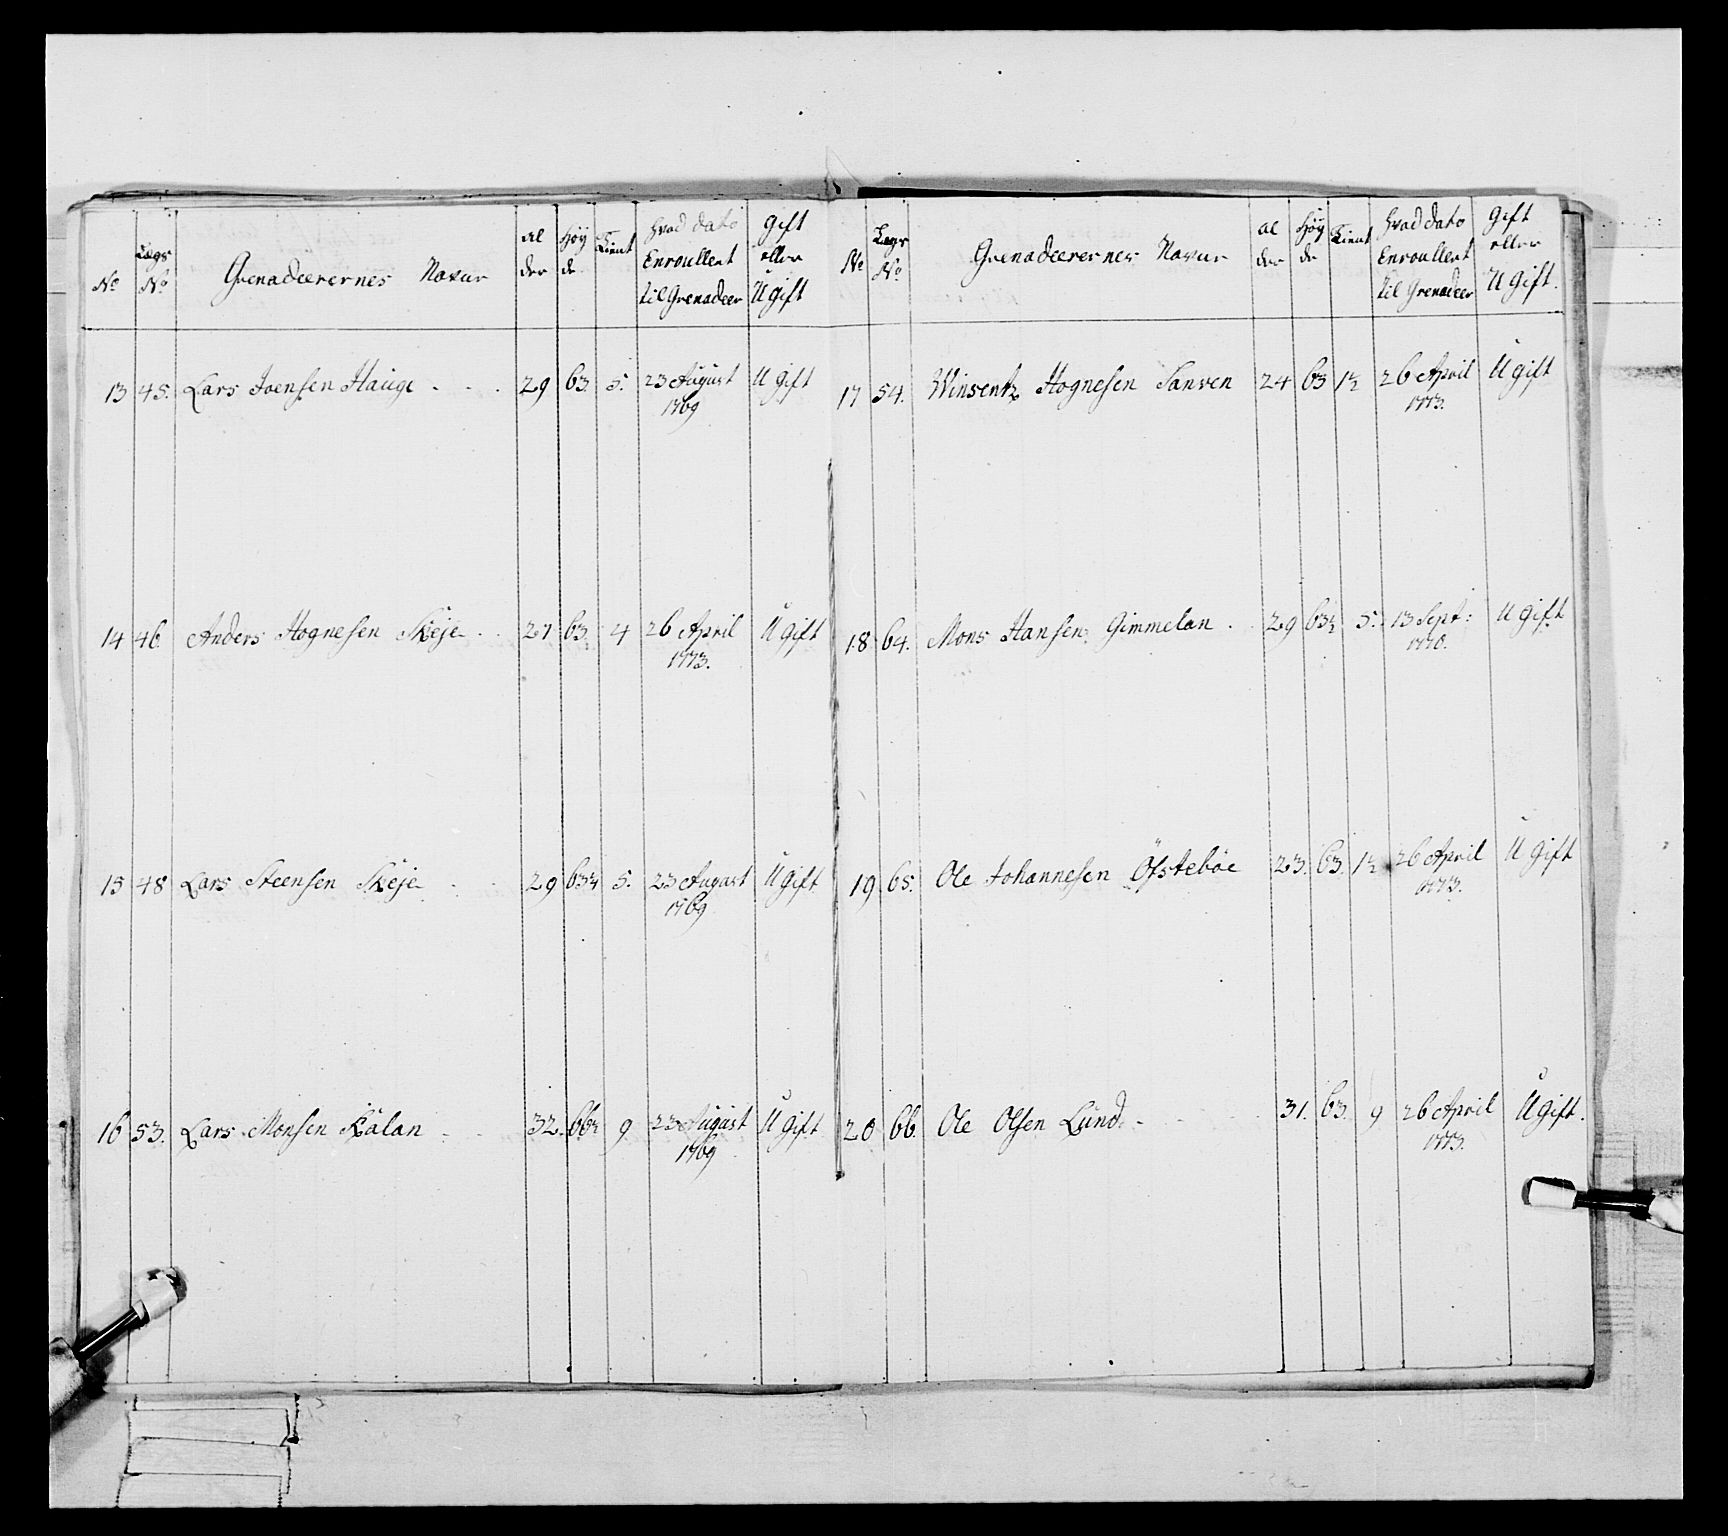 No Lægs No Grenadeerernes Navne Alder Høyde Tient Hvad dato Enroullert til Grenadeer Gift eller Ugift
13 45. Lars Joensen Hauge - - - 29 63. 5. 23 August 1769 Ugift
14 46 Anders Hognesen Skeje - - 27 63. 4 26 April 1773. Ugift
15 48 Lars Steensen Skeje - - 29 63½ 5. 23 August 1769 Ugift
16 53. Lars Monsen Kålan - - 32. 66½ 9 23 August 1769 Ugift
No Lægs No Grenadeerernes Navne Alder Høyde Tient Hvad dato Enroullert til Grenadeer Gift eller Ugift.
17 54. Winsentz Hognesen Sanven 24 63 1½ 26 April 1773. Ugift
18 64. Mons Hansen Gimmelan - 29 63½ 5. 13 Sept: 1770. Ugift
19 65. Ole Johannesen Öfstebøe 23. 63. 1½ 26 April 1773. Ugift
20 66. Ole Olsen Lund - - 31. 63. 9 26 April 1773. Ugift.